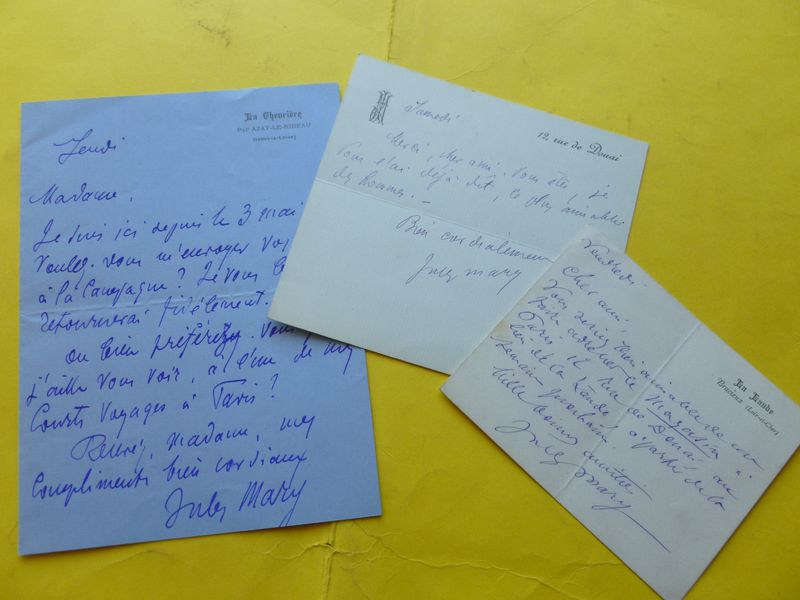 La Chevrière
Par AZAY-LE-RIDEAU
(Indre-et-Loire)
Jeudi
Madame,
Je suis ici depuis le 3 mai
Voulez-vous m'envoyer vos
à la Campagne ? Je vous les
retournerai fidèlement.
ou bien préférez-vous
j'aille vous voir, à l'un de mes
courts voyages à Paris ?
Recevez, Madame, mes
compliments bien cordiaux
Jules Mary
Samedi
12 rue de Douai
Merci, cher ami. Vous êtes, je
vous l'ai déjà dit, le plus aimable
des hommes. —
Bien cordialement
Jules Mary
Vendredi
La Lande
Bracieux (Loir-et-Cher)
Cher ami,
Vous seriez bien aimable de me
faire adresser le Magasin à
Paris 12 rue de Douai, au
lieu de la Lande à partir de la
semaine prochaine.
Mille bonnes amitiés
Jules Mary